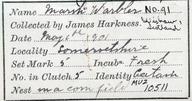 Name Marsh Warbler No 91
Collected by James Harkness.
Date May 6th 1901
Locality Somersetshire
Set Mark 5 Incub. Fresh
No. in Clutch 5 Identity
Nest in a corn field 10511